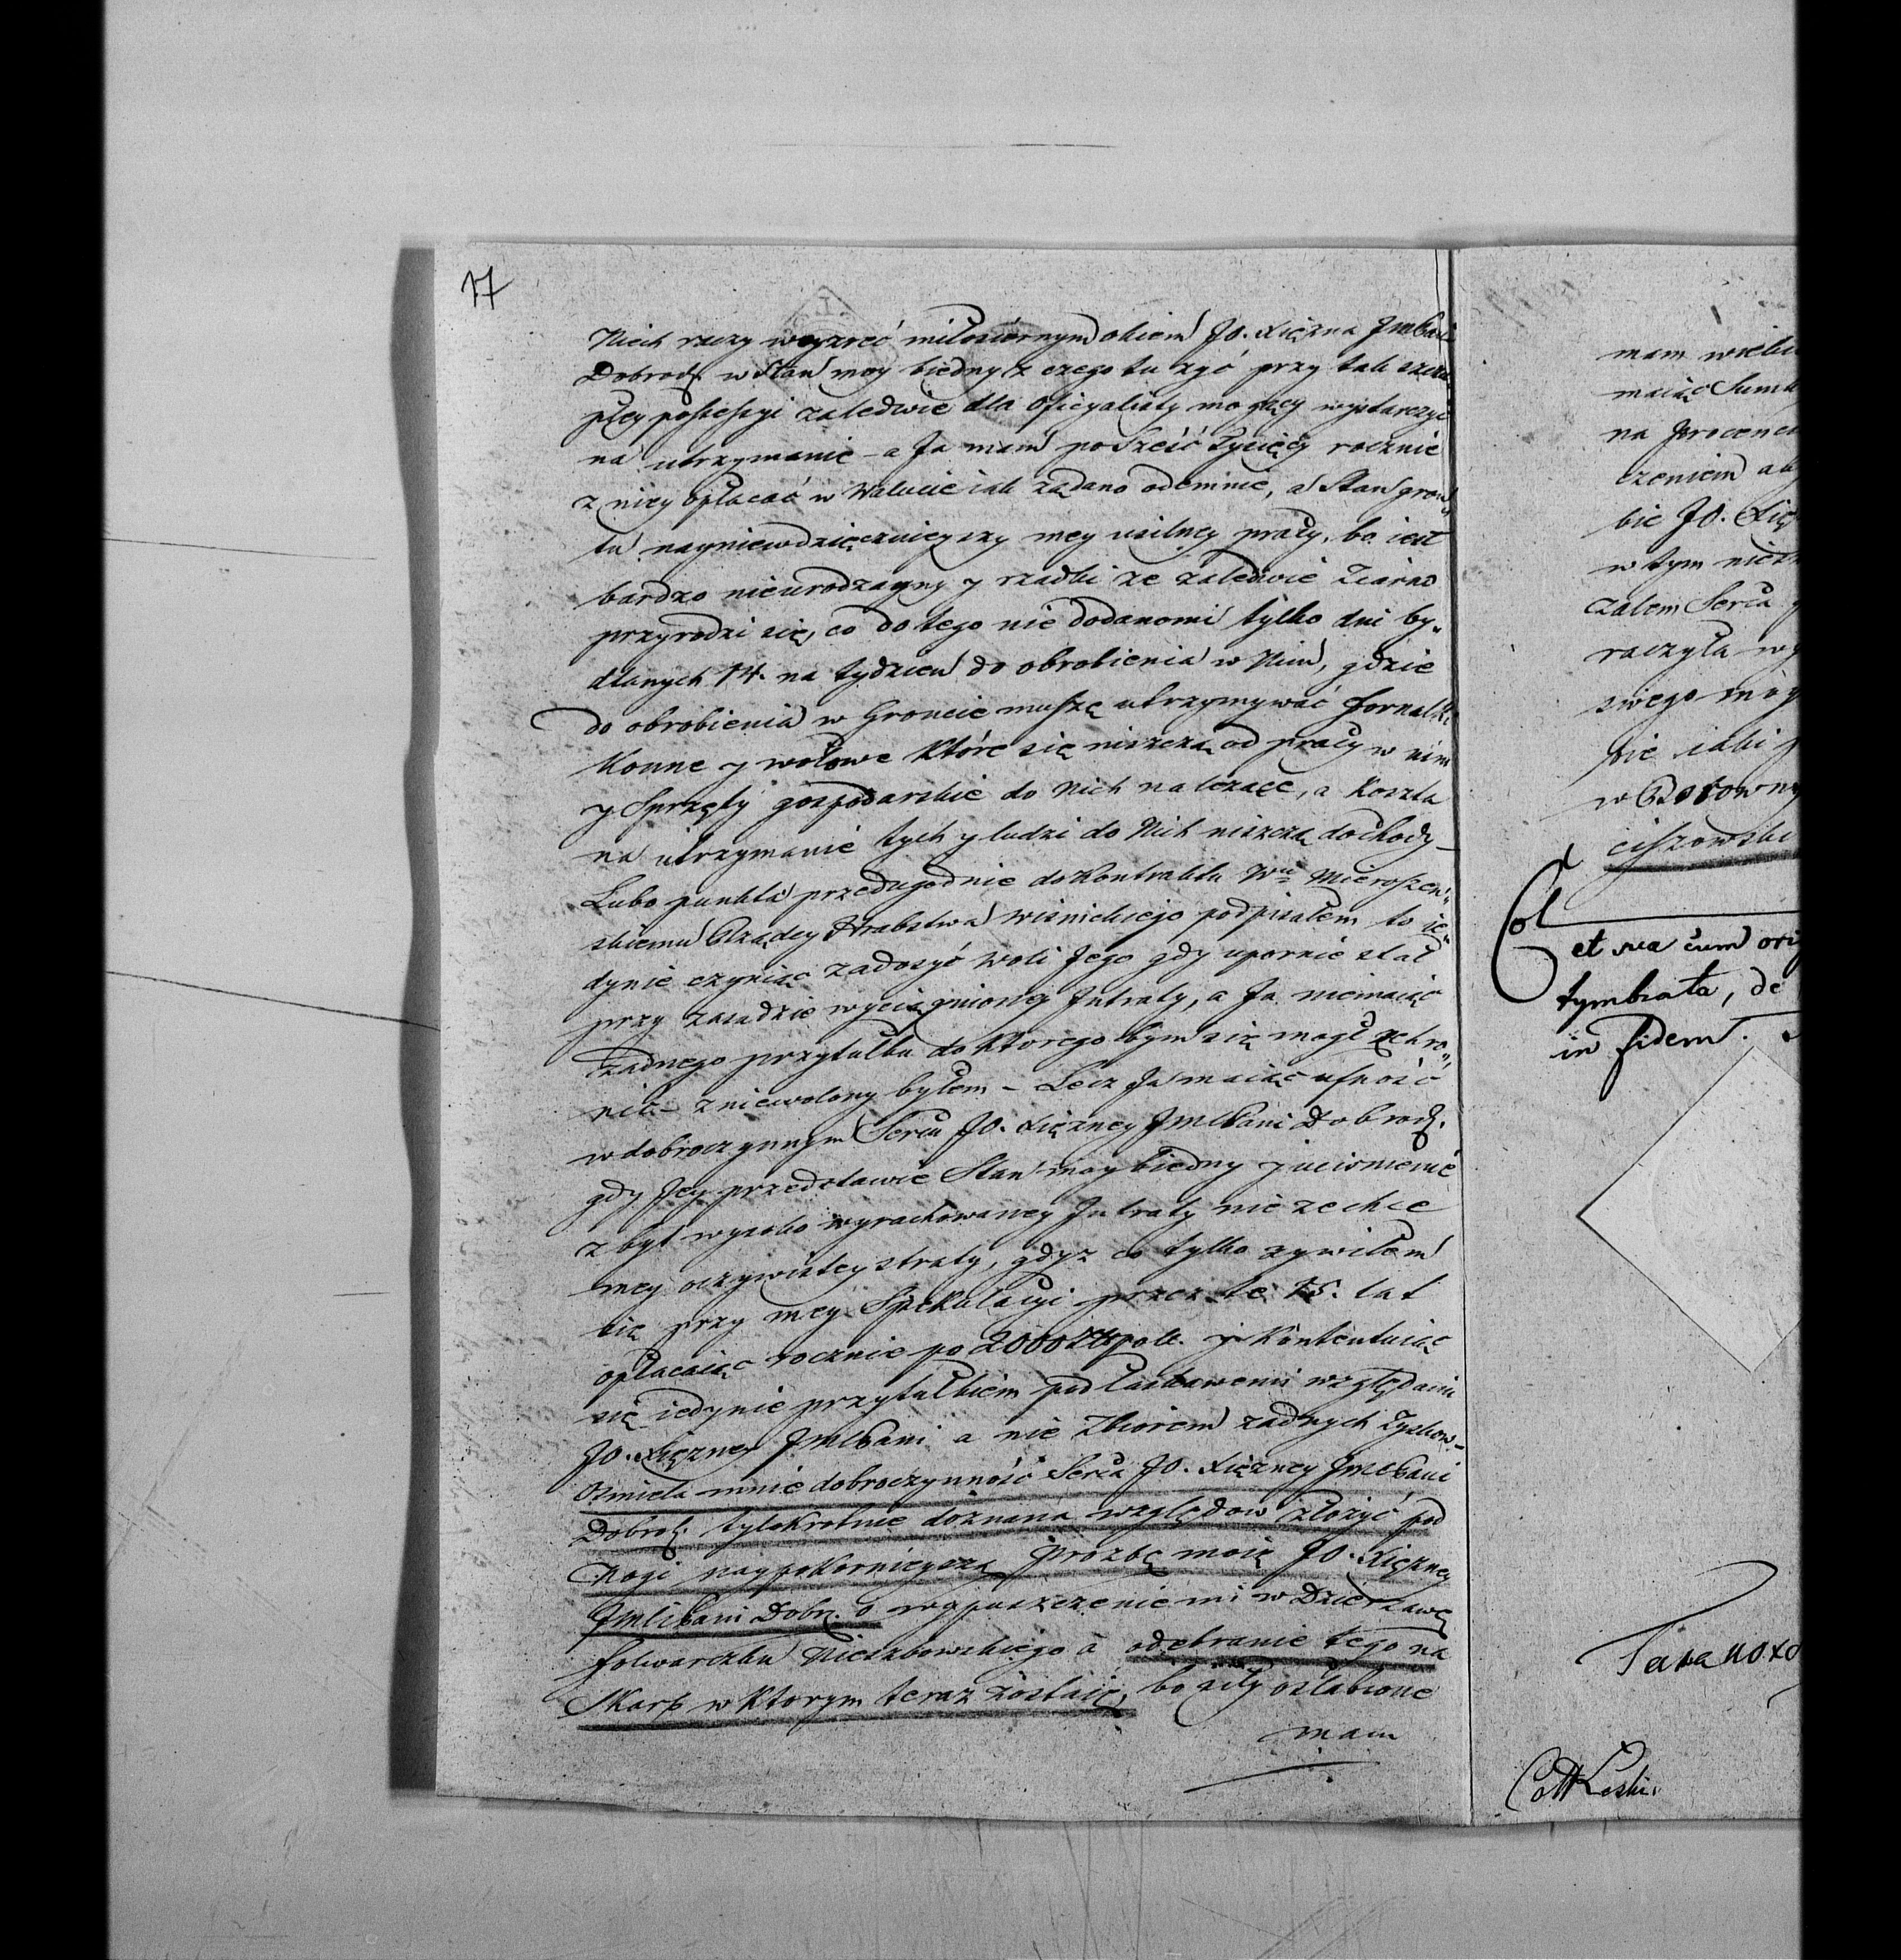 17
Niech raczy weyzrzeć miłosiernym okiem JO. Xiężna JmPani
Dobrodź w Stan moy biedny z czego tu żyć przy tak szczu„
płey possessyi zaledwie dla Oficyalisty mogącey wystarczyć
na utrzymanie – a Ja mam po Sześć Tysięcy rocznie
z niey opłacać w Walucie iak żądano odemnie, a Stan gron„
tu nayniewdzięcznieyszy mey usilney pracy, bo iest
bardzo nieurodzayny y rzadki że zaledwie Ziarno
przyrodzi się, co do tego nie dodano mi tylko dni by„
dlanych 14. na tydzień do obrobienia w Nim, gdzie
do obrobienia w Groncie muszę utrzymywać fornalki
Konne y wołowe które się niszczą od pracy w nim
y Sprzęty gospodarskie do Nich należące, a Koszta
na utrzymanie tych y ludzi do Nich niszczą dochody –
Lubo punkta przedugodnie do Kontraktu Wu Mieroszew„
skiemu Rządcy Hrabstwa Wiśnickiego podpisałem to ie„
dynie czyniąc zadosyć Woli Jego gdy upornie stał
przy zasadzie wyciągnioney Intraty, a Ja niemaiąc
żadnego przytułku do ktorego bym się mogł schro„
nić – zniewolony byłem – Lecz Ja maiąc ufność
w dobroczynnym Sercu JO. Xiężney JmPani Dobrodź.
gdy Jey przedstawie Stan moy biedny y uciśnienie
zbyt wysoko wyrachowaney Intraty nie zechce
mey oczywistey straty, gdyż co tylko żywiłem
się przy mey Spekulacyi przez te 15. lat
opłacaiąc rocznie po 2000 Złpols. y Kontentuiąc
się iedynie przytułkiem pod łaskawemi względami
JO. Xiężney JmPani a nie Zbiorem żadnych Zysków –
Ośmiela mnie dobroczynność Serca JO. Xiężney JmPani
Dobrodź. tylokrotnie doznana względow złożyć pod
Nogi naypokornieyszą prozbę moię JO. Xiężney
JmPani Dobrź. o wypuszczenie mi w Dzierżawę
folwarczku Nieszkowskiego a odebranie tego na
Skarb w Ktorym teraz zostaię, bo siły osłabione
mam
mam
maiąc Summ
na
czeniem
bie JO. Xię
w tym
żalem Serca
raczyła
swego
w
ciszowski
Col
et
tymbrata, de
in fidem.